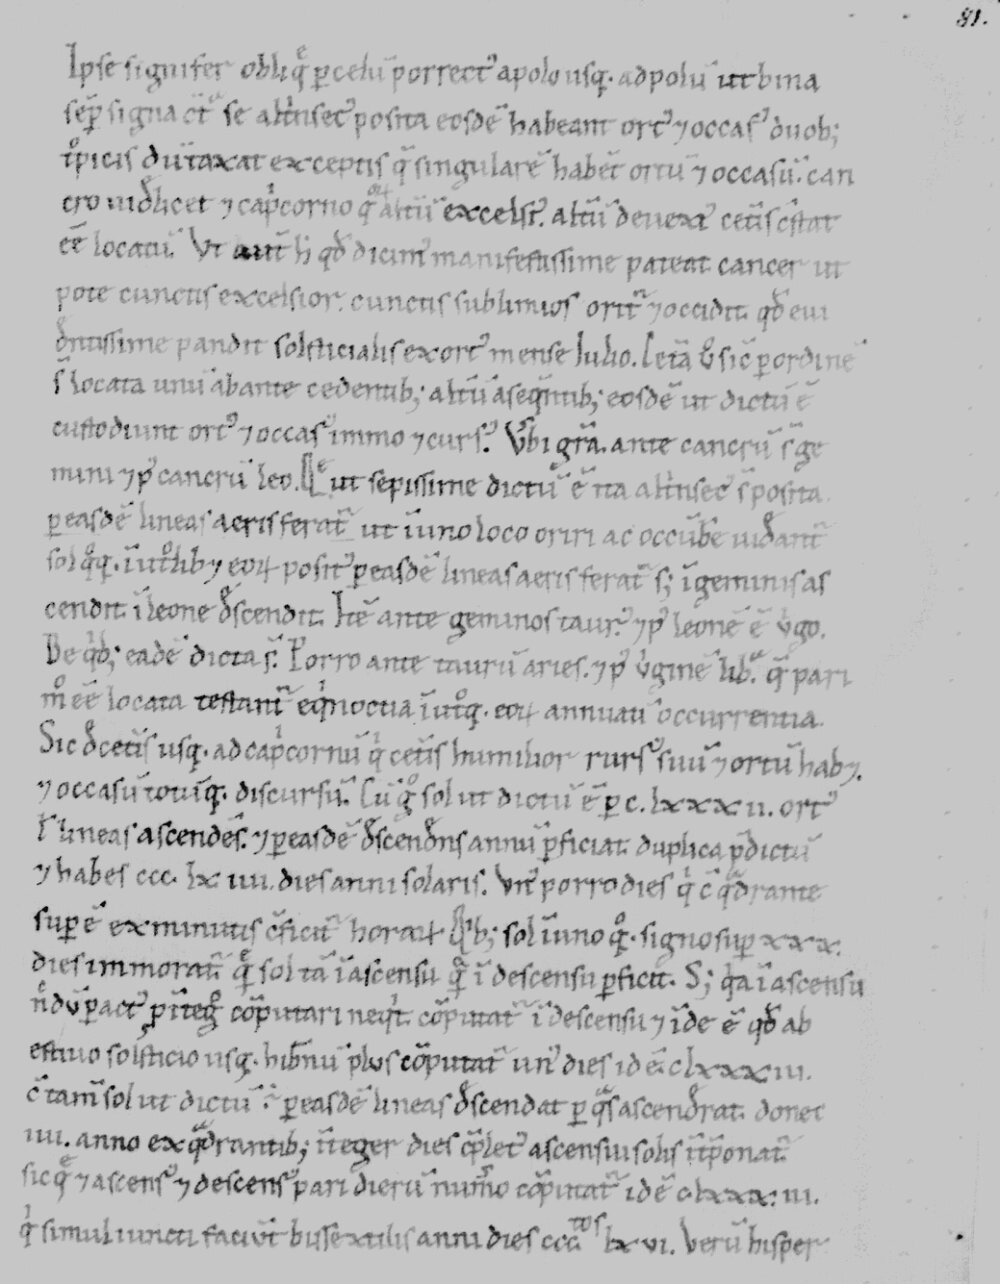 81.
Ipse signifer obliq̄ꝫ ꝑ celū porrect᷒ apolo usq; ad polū ut bina
sēꝑ signa c̄t᷑ se alt̄insec᷒ posita eosdē habeant ort᷒ ⁊ occas᷒ duob;
tͦpicis duntaxat exceptis q̄ singularē habēt ortū ⁊ occasū. can
cro uidl̄icet ⁊ cap̍corno q̄ꝝ altū excelsi᷒. altū deuexi᷒ cet̄is c̄stat
ēē locatū. Ut aūt h̄ qđ dicim᷒ manifestissime pateat cancer ut
pote cunctis excelsior. cunctis sublimios orit᷑ ⁊ occidit. qđ eui
đntissime pandit solsticialis exort᷒ mense Iulio. Cetā ů sic̄ ꝑ ordinē
s̄ locata unū abante cedentib; altū aseq̄ntib; eosdē ut dictū ē
custodiunt ort᷒ ⁊ occas᷒ immo ⁊ curs᷒. Ůbi gr̄a. ante cancrū s̄ ge
mini ⁊ p᷒ cancrū leo. Q̄ ut sepissime dictū ē ita alt̄insec᷒ s̄ posita
ꝑ easdē lineas aeris ferat᷑ ut ī uno loco oriri ac occūbe uiđant᷑
sol qͦq;. īutͦlib⁊ eoꝝ posit᷒ ꝑ easdē lineas aeris ferat᷑ s; ī geminis as
cendit. ī leone đscendit. Itē ante geminos taur᷒. ⁊ p᷒ leonē ē ůgo.
De q̍b; eadē dicta s̄. Porro ante taurū aries. ⁊ p᷒ ůginē libͣ. q̄ pari
mͦ ēē locata testant᷑ eq̍noctia ī utͦq; eoꝝ annuatī occurrentia.
Sic đ cet̄is usq; ad cap̍cornū q̍ cet̄is humilior rurs᷒ suū ⁊ ortū hab⁊.
⁊ occasū totūq; discursū. Cū gͦ sol ut dictū ē ꝑ c. lxxx ii. ort᷒
l̄ lineas ascendēs. ⁊ ꝑ easdē đscenđns annū ꝑficiat. duplica p̄dictū
⁊ habes ccc. lx iiii. dies anni solaris. Un᷒ porro dies q̍ c̄ qͣđrante
suꝑ ē ex minutis c̄ficit᷑ horaꝝ Qͥb; sol ī uno qͦq; signo suꝑ xxx.
dies immorat᷑. q̄ sol tā ī ascensu qͣ̄ ī descensu ꝑficit. S; qͥa ī ascensu
nͦdū ꝑact᷒ p̄ īteg̊ cōputari neqͥt. cōputat᷑ ī descensu ⁊ īde ē qđ ab
estiuo solsticio usq; hib̄nū plus cōputat᷑ un᷒ dies id ē clxxx iii.
c̄ tam̄ sol ut dictū ē ꝑ easdē lineas đscendat ꝑ qͣs ascenđrat. donec
iiii. anno ex qͣđrantib; īteger dies cp̄let᷒ ascensui solis īt̄ponat᷑
sicqꝫ ⁊ ascens᷒ ⁊ descens᷒ pari dierū num̄o cōputat᷑ id ē clxxx iii.
q̍ simul iuncti faciūt bissextilis anni dies ccc.tos lx vi. Verū hisper